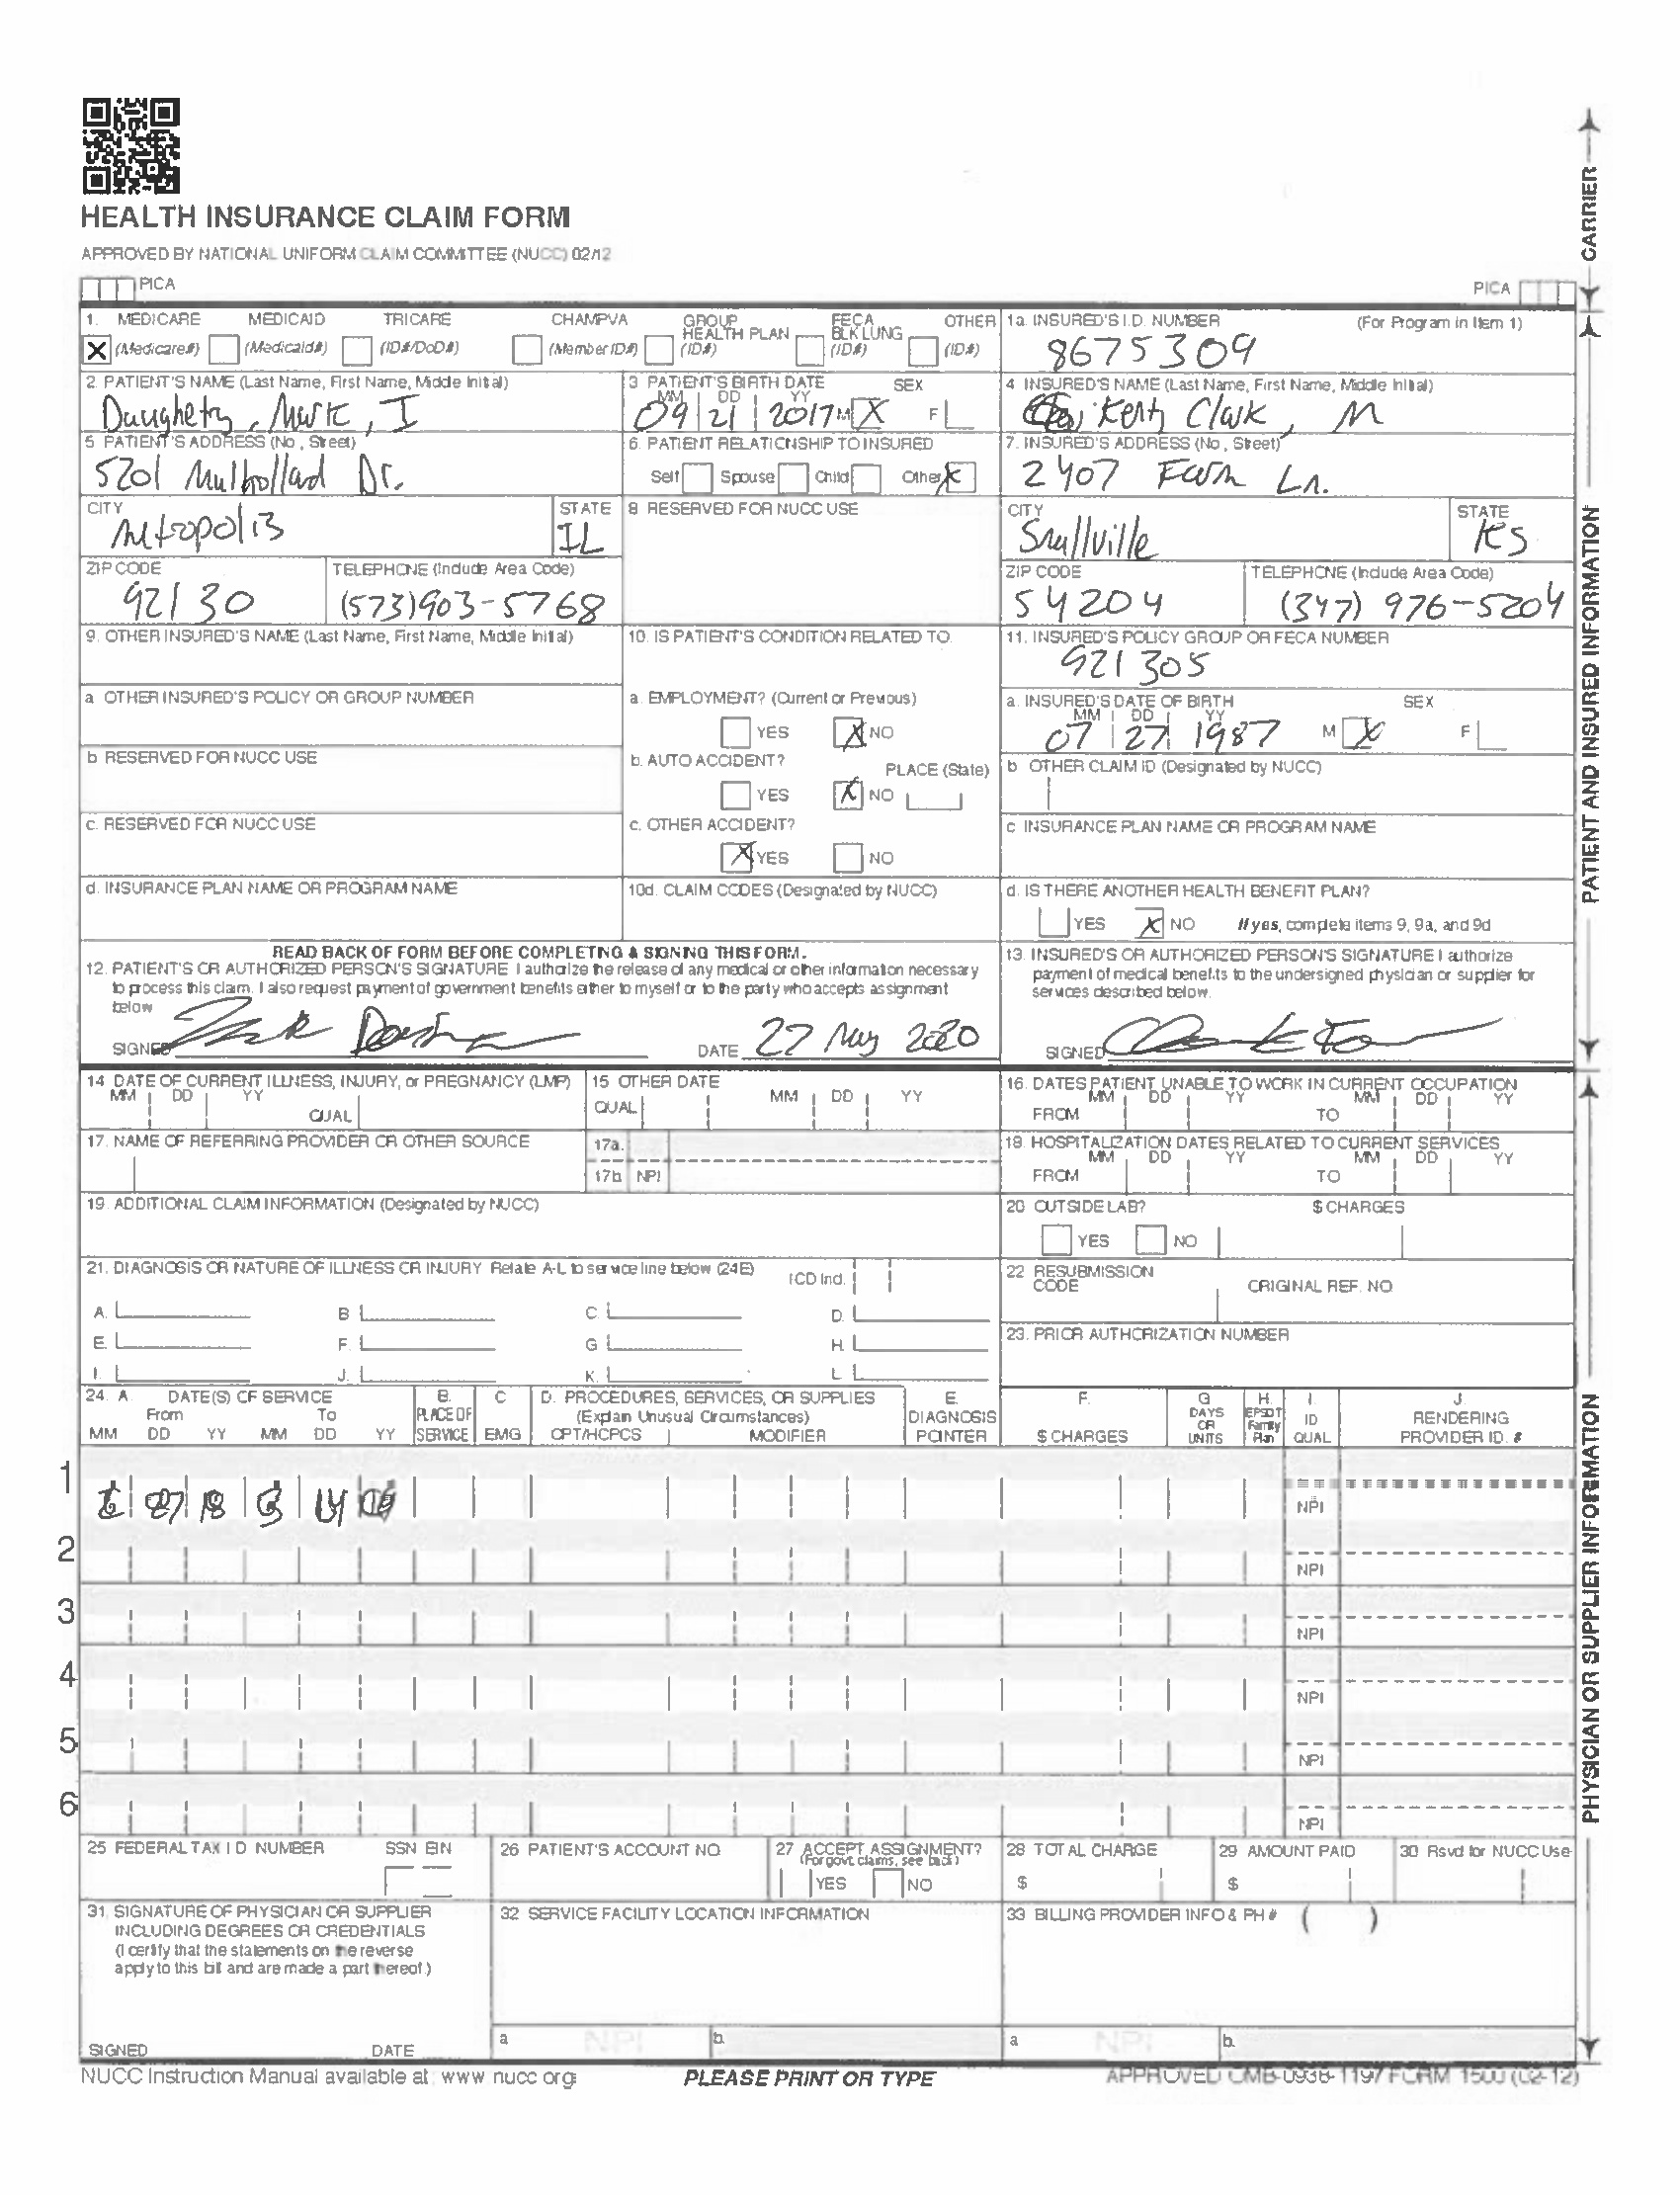 HEALTH INSURANCE CLAIM FORM
APPROVED BY NATIONAL UNIFORM CLAIM COMMITTEE (NUCC) 02/12
PICA PICA
CARRIER
1. MEDICARE MEDICAID TRICARE CHAMPVA GROUP HEALTH PLAN FECA BLK LUNG OTHER
(Medicare#) (Medicaid#) (ID#/DoD#) (Member ID#) (ID#) (ID#) (ID#)
X
1a. INSURED'S I.D. NUMBER (For Program in Item 1)
8675309
2. PATIENT'S NAME (Last Name, First Name, Middle Initial)
Daughety, Mark, I
3. PATIENT'S BIRTH DATE SEX
MM DD YY
09 21 2017 M X F
4. INSURED'S NAME (Last Name, First Name, Middle Initial)
Kent, Clark, M
5. PATIENT'S ADDRESS (No., Street)
5201 Mulholland Dr.
6. PATIENT RELATIONSHIP TO INSURED
Self Spouse Child Other X
7. INSURED'S ADDRESS (No., Street)
2407 Farm Ln.
CITY STATE
Metropolis IL
8. RESERVED FOR NUCC USE
CITY STATE
Smallville KS
ZIP CODE TELEPHONE (Include Area Code)
92130 (573)903-5768
ZIP CODE TELEPHONE (Include Area Code)
54204 (347) 976-5204
9. OTHER INSURED'S NAME (Last Name, First Name, Middle Initial)
10. IS PATIENT'S CONDITION RELATED TO
11. INSURED'S POLICY GROUP OR FECA NUMBER
921305
a. OTHER INSURED'S POLICY OR GROUP NUMBER
a. EMPLOYMENT? (Current or Previous)
YES X NO
a. INSURED'S DATE OF BIRTH SEX
MM DD YY
07 27 1987 M X F
b. RESERVED FOR NUCC USE
b. AUTO ACCIDENT? PLACE (State)
YES X NO
b. OTHER CLAIM ID (Designated by NUCC)
c. RESERVED FOR NUCC USE
c. OTHER ACCIDENT?
X YES NO
c. INSURANCE PLAN NAME OR PROGRAM NAME
d. INSURANCE PLAN NAME OR PROGRAM NAME
10d. CLAIM CODES (Designated by NUCC)
d. IS THERE ANOTHER HEALTH BENEFIT PLAN?
YES X NO If yes, complete items 9, 9a, and 9d
READ BACK OF FORM BEFORE COMPLETING & SIGNING THIS FORM.
12. PATIENT'S OR AUTHORIZED PERSON'S SIGNATURE I authorize the release of any medical or other information necessary
to process this claim. I also request payment of government benefits either to myself or to the party who accepts assignment
below
SIGNED DATE 27 May 2020
13. INSURED'S OR AUTHORIZED PERSON'S SIGNATURE I authorize
payment of medical benefits to the undersigned physician or supplier for
services described below.
SIGNED
PATIENT AND INSURED INFORMATION
14. DATE OF CURRENT ILLNESS, INJURY, or PREGNANCY (LMP)
MM DD YY
QUAL
15. OTHER DATE
QUAL MM DD YY
16. DATES PATIENT UNABLE TO WORK IN CURRENT OCCUPATION
MM DD YY MM DD YY
FROM TO
17. NAME OF REFERRING PROVIDER OR OTHER SOURCE
17a.
17b. NPI
18. HOSPITALIZATION DATES RELATED TO CURRENT SERVICES
MM DD YY MM DD YY
FROM TO
19. ADDITIONAL CLAIM INFORMATION (Designated by NUCC)
20. OUTSIDE LAB? $ CHARGES
YES NO
21. DIAGNOSIS OR NATURE OF ILLNESS OR INJURY Relate A-L to service line below (24E)
ICD Ind.
A. B. C. D.
E. F. G. H.
I. J. K. L.
22. RESUBMISSION CODE ORIGINAL REF. NO.
23. PRIOR AUTHORIZATION NUMBER
24. A. DATE(S) OF SERVICE B. C. D. PROCEDURES, SERVICES, OR SUPPLIES E. F. G. H. I. J.
From To PLACE OF (Explain Unusual Circumstances) DIAGNOSIS DAYS OR EPSDT Family ID RENDERING
MM DD YY MM DD YY SERVICE EMG CPT/HCPCS MODIFIER POINTER $ CHARGES UNITS Plan QUAL PROVIDER ID. #
1
18
NPI
2 NPI
3 NPI
4 NPI
5 NPI
6 NPI
PHYSICIAN OR SUPPLIER INFORMATION
25. FEDERAL TAX I.D. NUMBER SSN EIN
26. PATIENT'S ACCOUNT NO.
27. ACCEPT ASSIGNMENT?
(For govt. claims, see back)
YES NO
28. TOTAL CHARGE
$
29. AMOUNT PAID
$
30. Rsvd for NUCC Use
31. SIGNATURE OF PHYSICIAN OR SUPPLIER
INCLUDING DEGREES OR CREDENTIALS
(I certify that the statements on the reverse
apply to this bill and are made a part thereof.)
SIGNED DATE
32. SERVICE FACILITY LOCATION INFORMATION
a. NPI b.
33. BILLING PROVIDER INFO & PH # ( )
a. NPI b.
NUCC Instruction Manual available at: www.nucc.org
PLEASE PRINT OR TYPE
APPROVED OMB-0938-1197 FORM 1500 (02-12)